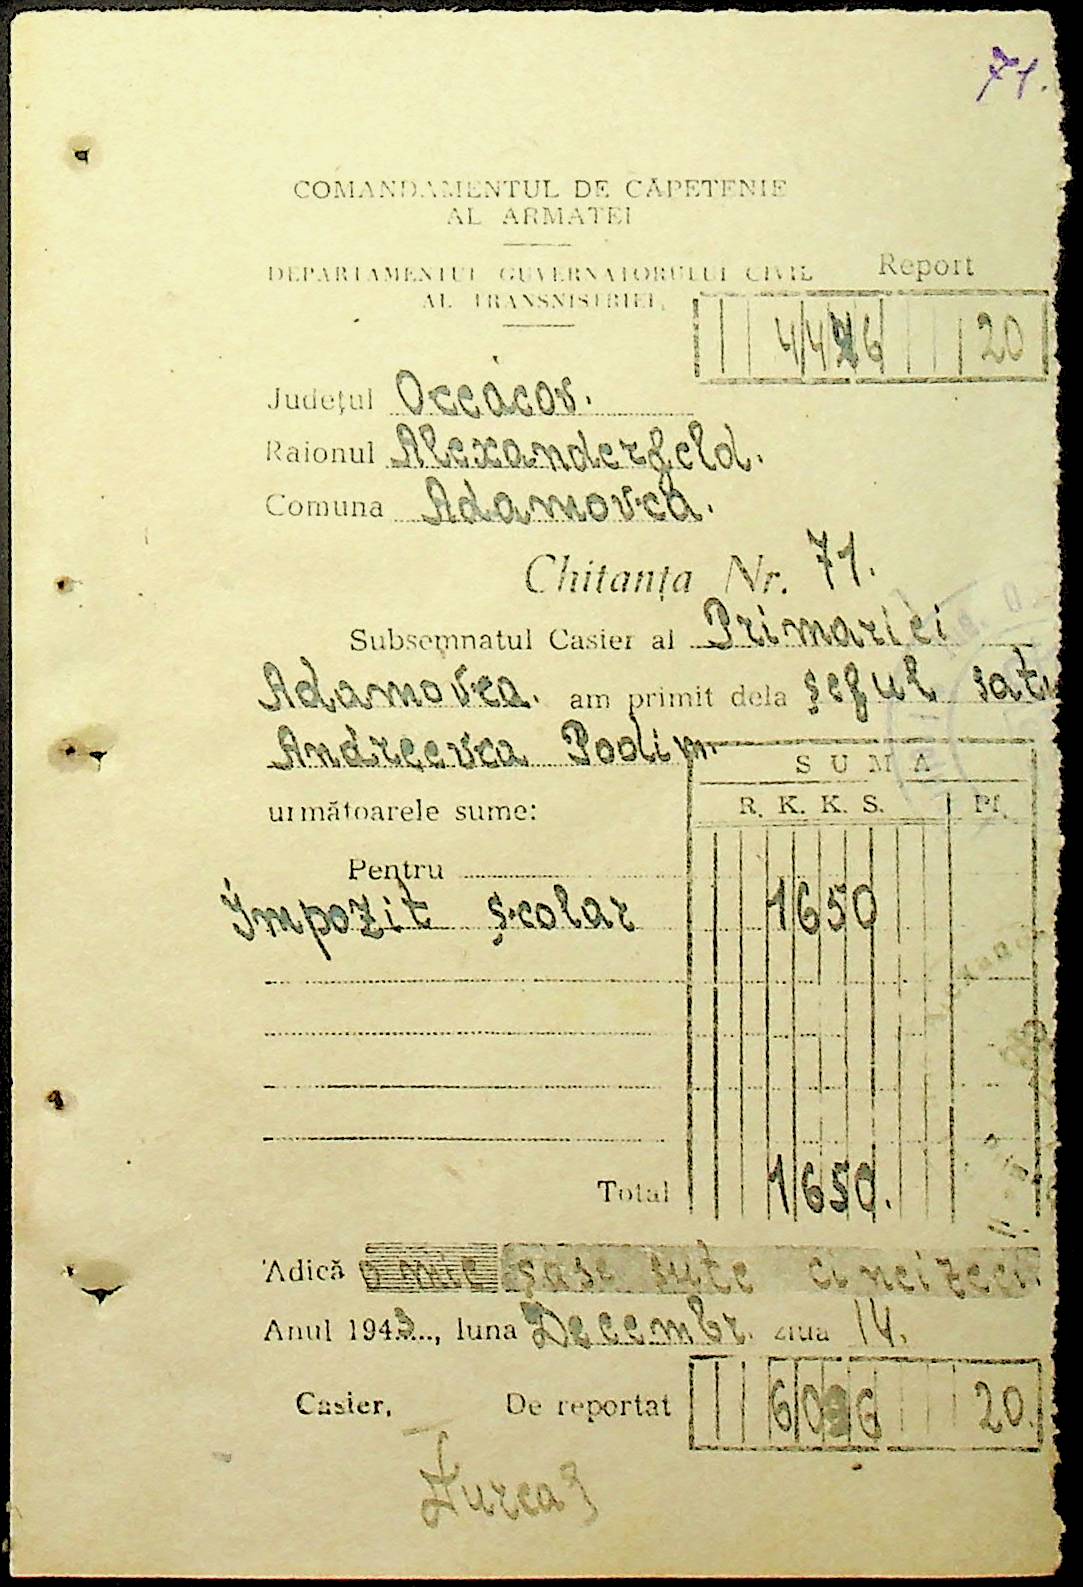 71.
COMANDAMENTUL DE CĂPETENIE
AL ARMATEI
DEPARTAMENTUL GUVERNATORULUI CIVIL
AL TRANSNISTRIEI,
Report
4426 20
Județul Occácov.
Raionul Alexanderfeld.
Comuna Adamovca.
Chitanța Nr. 71.
Subsemnatul Casier al Primariei
Adamovca. am primit dela șeful satu
Andreevca Podim
următoarele sume:
SUMA
R. K. K. S. Pf.
Pentru
Impozit școlar 1650
Total 1650.
Adică o mie șase sute cincizeci.
Anul 1943..., luna Decembr. ziua 14.
Casier, De reportat 6026 20.